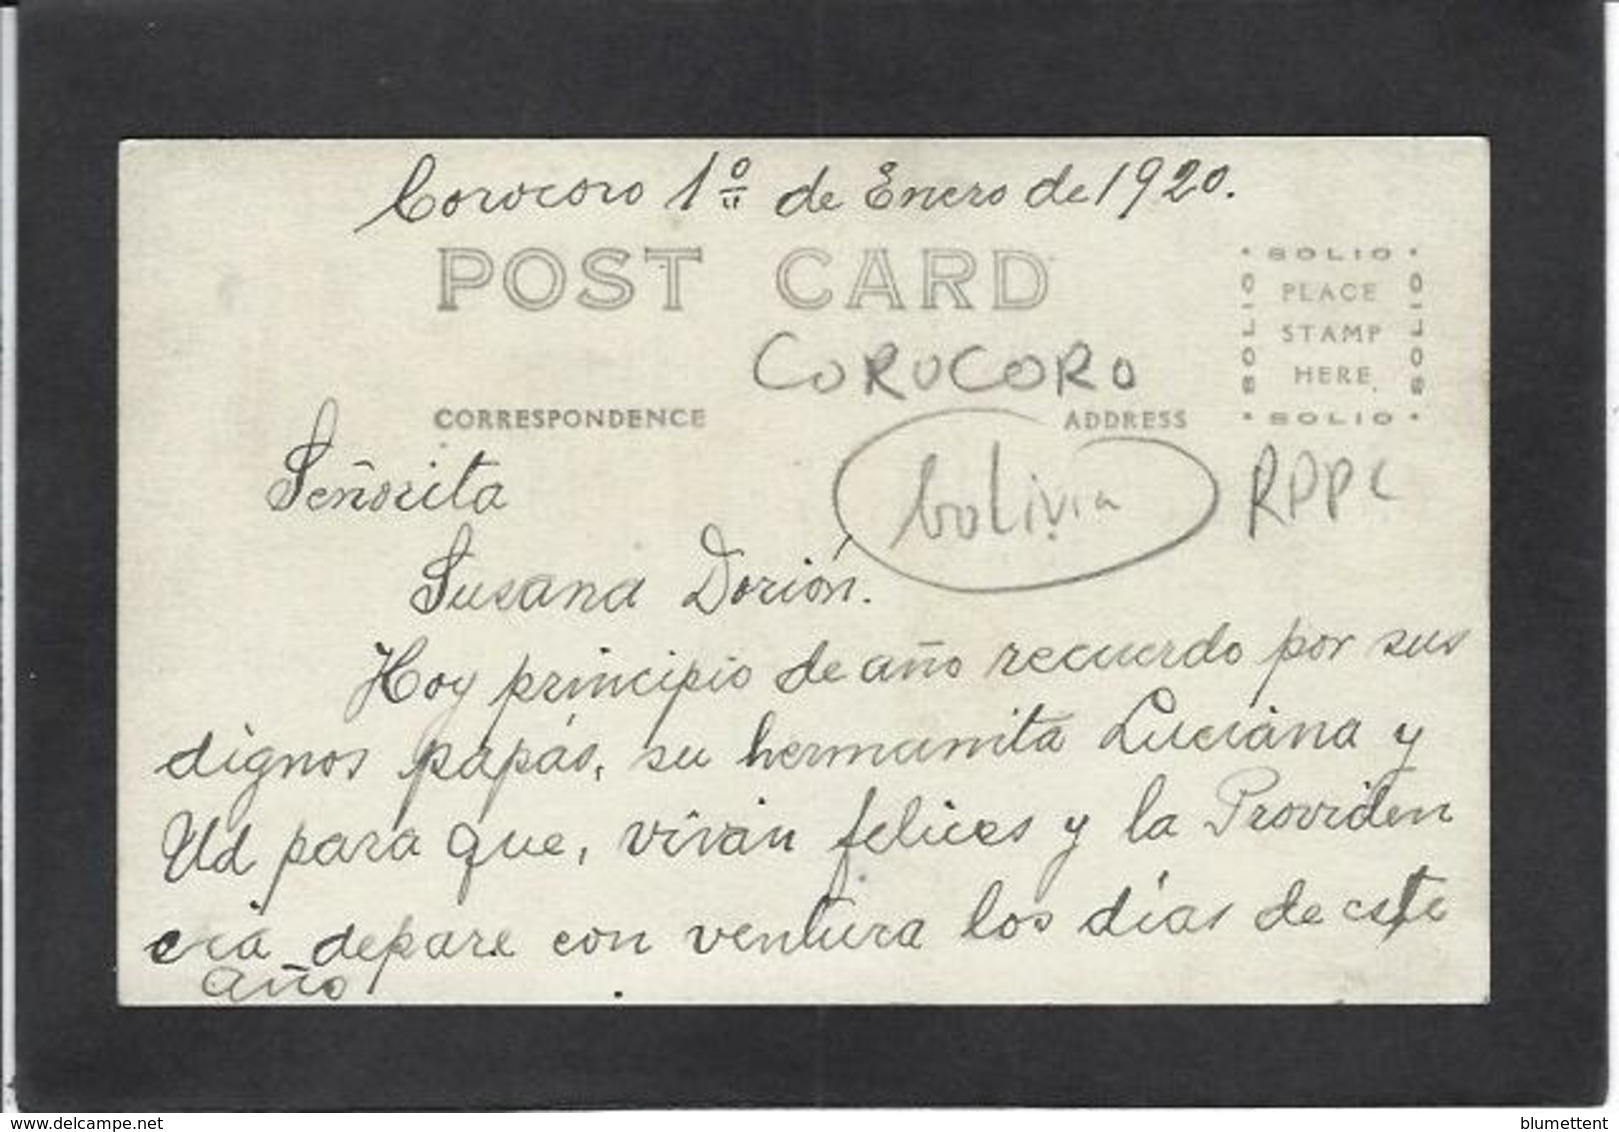 Corocoro 1º de Enero de 1920.
POST CARD
SOLIO
SOLIO PLACE SOLIO
STAMP
HERE
SOLIO
COROCORO
CORRESPONDENCE ADDRESS
Señorita
bolivia
RPPC
Susana Dorión.
Hoy principio de año recuerdo por sus
dignos papás, su hermanita Luciana y
Ud para que, vivan felices y la Providen
cia depare con ventura los días de este
año
delcampe.net
blumettent